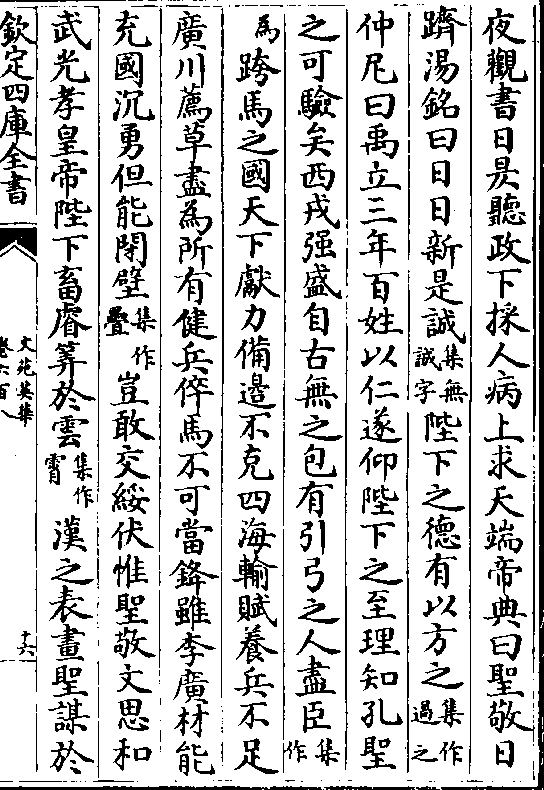 夜觀書日昃聽政下採人病上求天端帝典曰聖敬日
躋湯銘曰日日新是誠集無誠字陛下之德有以方之集作過之
仲尼曰禹立三年百姓以仁遂仰陛下之至理知孔聖
之可驗矣西戎强盛自古無之包有引弓之人盡臣集作
為跨馬之國天下獻力備邉不克四海輸賦養兵不足
廣川薦草盡為所有健兵倅馬不可當鋒雖李廣材能
充國沉勇但能閉壁集作疊豈敢交綏伏惟聖敬文思和
武光孝皇帝陛下畜睿筭於雲集作霄漢之表畫聖謀於
欽定四庫全書
文苑英華
卷六百八
十六